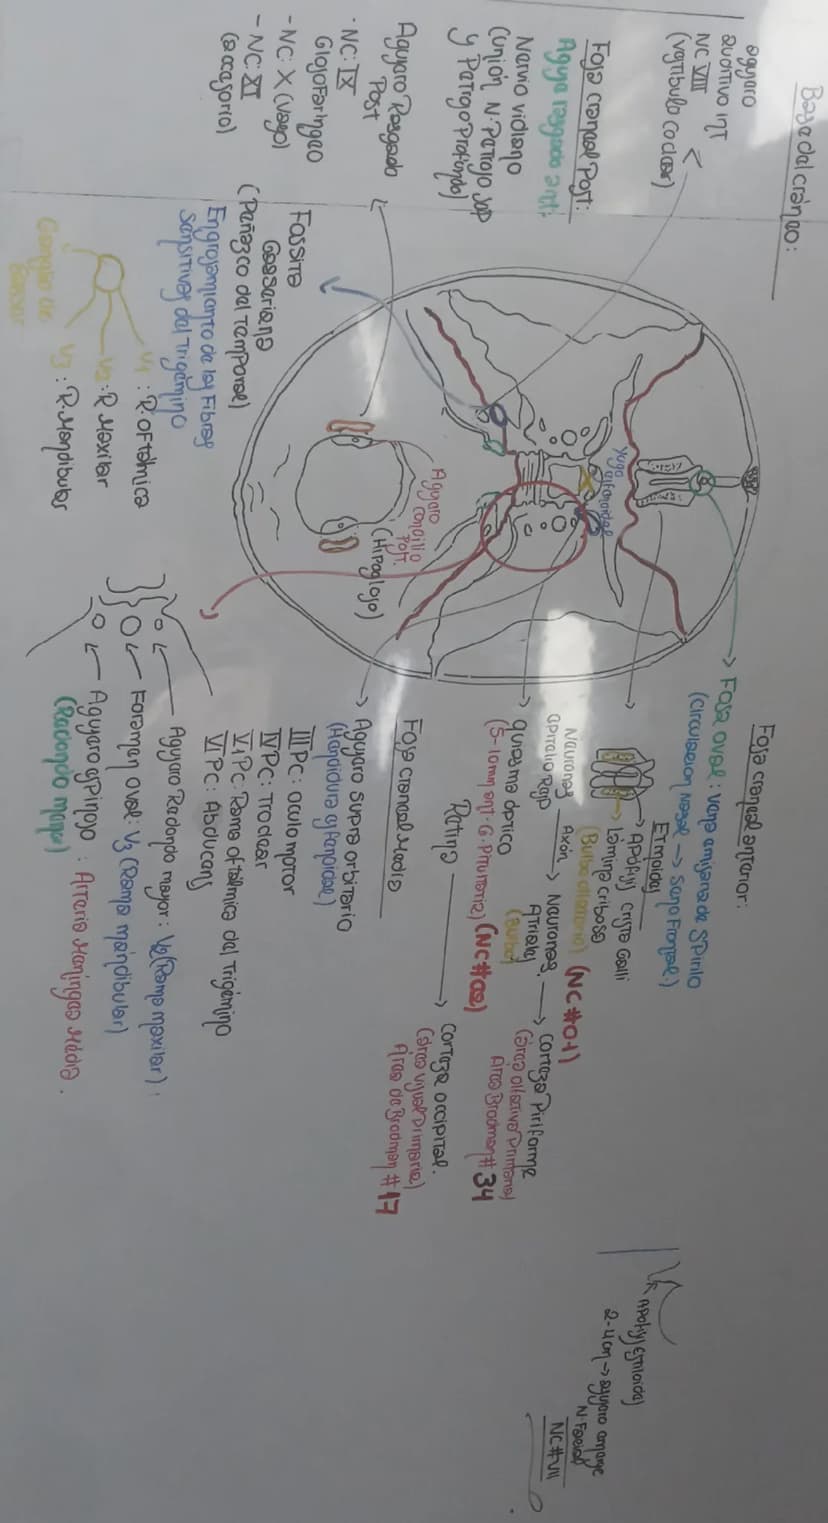 Base del cráneo:
agujero
auditivo int
NC VIII
(vestibulo coclear)
Fosa craneal Post:
Aguje rasgado ant:
Nervio vidiano
(unión N. Petroso sup
y Petroso Profundo)
Agujero Rasgado
Post
·NC: IX
Glosofaringeo
-NC: X (vago)
-NC: XI
(accesorio)
Fossita
Gasseriana
(Peñasco del temporal)
Engrosamiento de las Fibras
sensitivas del Trigémino
V1: R. oftálmica
V2: R Maxilar
V3: R. Mandibular
Ganglio de
Yugo
esfenoidal
Agujero
condilio
Post.
(Hipogloso)
Fosa craneal anterior:
Fosa oval: vena emisaria de SPinilo
(circulacion nasal → seno Frontal)
Etmoides
APófisis crista Galli
Lámina cribosa
(Bulbo olfatorio) (NC #01)
Neuronas
apitelio Resp
Axón
Neuronas
Atriales
(Bulbo)
corteza Piriforme
(área olfativa Primaria)
Area Brodman # 34
quiasma óptico
(5-10mm ant. G. Pituitaria) (NC #02)
Retina
corteza occipital.
(área visual Primaria)
Área de Brodman # 17
Fosa craneal Media
Agujero supra orbitario
(Hendidura esfenoidal)
III PC: oculomotor
IV PC: Troclear
VI PC: Rama oftálmica del Trigémino
VI PC: Abducens
Agujero Redondo mayor: V2 (Rama maxilar)
Foramen oval: V3 (Rama mandibular)
Agujero espinoso: Arteria Meningea Media.
(Redondo menor)
APófisis Estiloides
2-4cm → agujero emerge
N. Facial
NC#VII